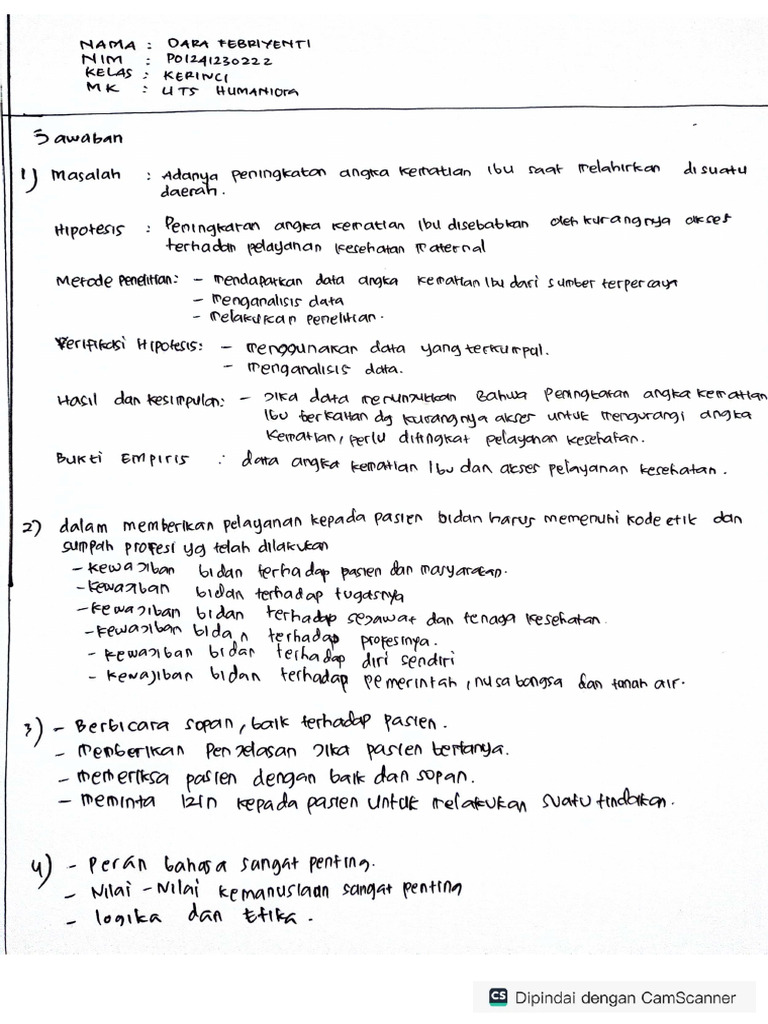 NAMA : DARA FEBRIYENTI
NIM : PO1241230222
KELAS : KERINCI
MK : UTS HUMANIORA
Jawaban
1) Masalah : Adanya peningkatan angka kematian Ibu saat melahirkan disuatu
daerah.
Hipotesis : Peningkatan angka kematian Ibu disebabkan oleh kurangnya akses
terhadap pelayanan kesehatan maternal
Metode Penelitian: - mendapatkan data angka kematian Ibu dari sumber terpercaya
- menganalisis data
- melakukan penelitian.
Verifikasi Hipotesis: - menggunakan data yang terkumpul.
- menganalisis data.
Hasil dan kesimpulan: - Jika data menunjukkan Bahwa Peningkatan angka kematian
Ibu berkaitan dg kurangnya akses untuk mengurangi angka
kematian, perlu ditingkat pelayanan kesehatan.
Bukti Empiris : data angka kematian Ibu dan akses pelayanan kesehatan.
2) dalam memberikan pelayanan kepada pasien bidan harus memenuhi kode etik dan
sumpah profesi yg telah dilakukan
- kewajiban bidan terhadap pasien dan masyarakat.
- kewajiban bidan terhadap tugasnya
- kewajiban bidan terhadap sejawat dan tenaga kesehatan
- kewajiban bidan terhadap profesinya.
- kewajiban bidan terhadap diri sendiri
- kewajiban bidan terhadap pemerintah, nusa bangsa dan tanah air.
3) - Berbicara sopan, baik terhadap pasien.
- memberikan Penjelasan Jika pasien bertanya.
- memeriksa pasien dengan baik dan sopan.
- meminta izin kepada pasien untuk melakukan suatu tindakan.
4) - Peran bahasa sangat penting.
- Nilai - Nilai kemanusiaan sangat penting
- logika dan Etika.
CS Dipindai dengan CamScanner